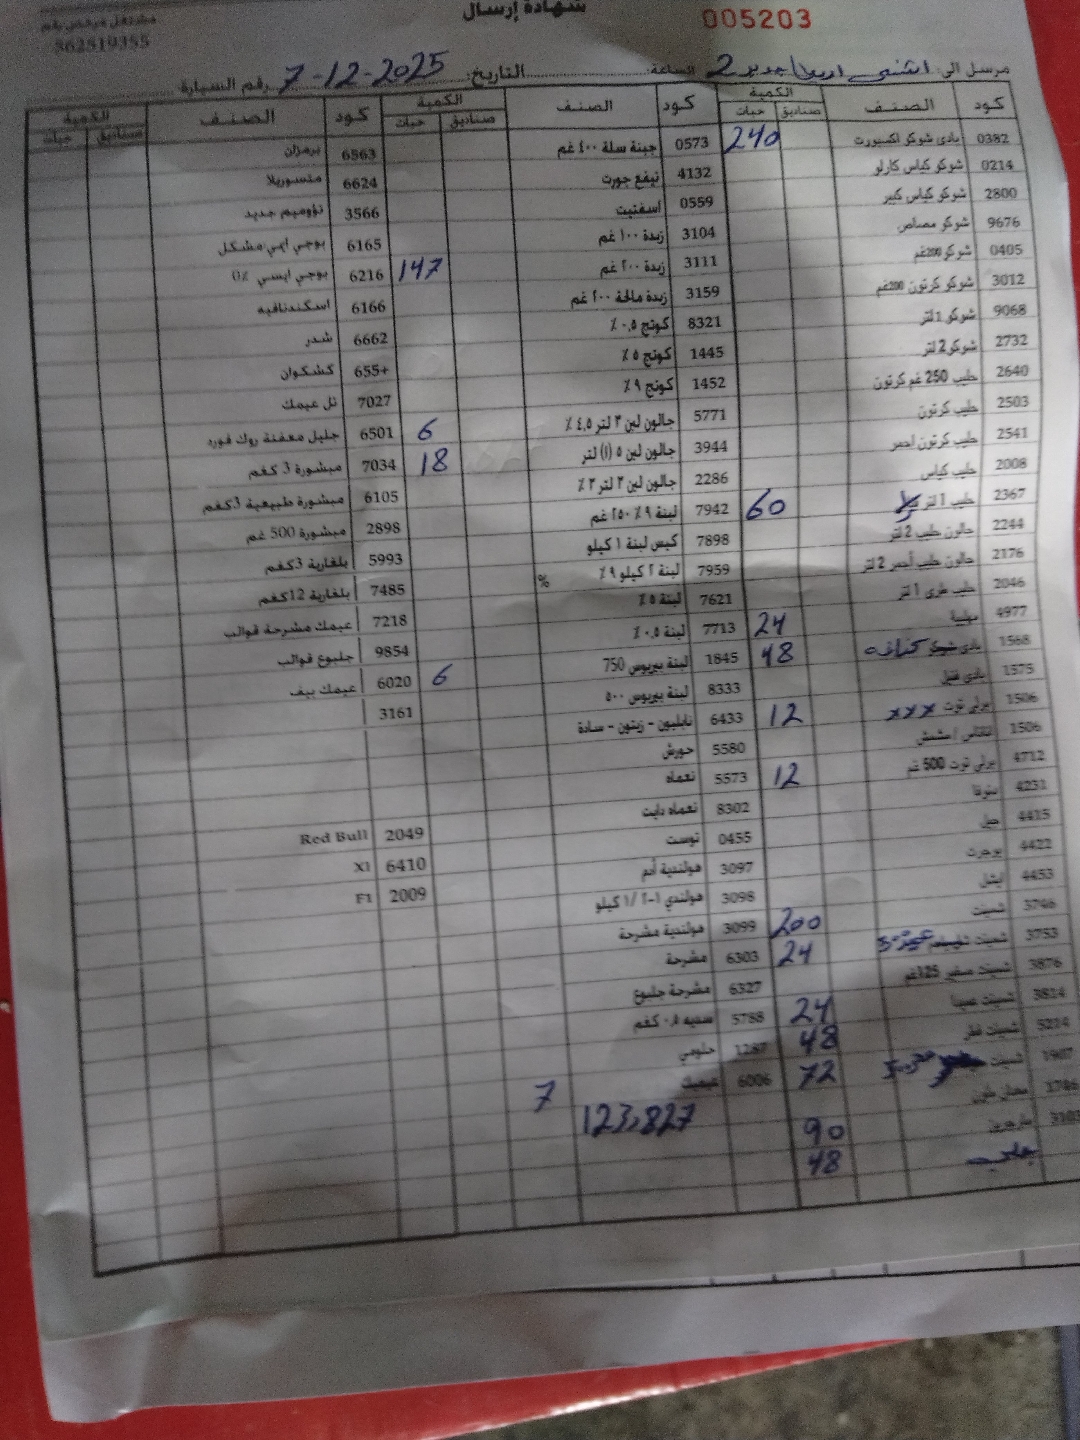 شهادة إرسال
مشتغل مرخص رقم
562519355
005203
مرسل الى: الساعة: التاريخ: 7-12-2025 رقم السيارة
كود الصنف الكمية صناديق حبات
0382 بادي شوكو اكسبورت 240
0214 شوكو كياس كارلو
2800 شوكو كياس كبير
9676 شوكو مصاص
0405 شوكو 200غم
3012 شوكو كرتون 200غم
9068 شوكو 1 لتر
2732 شوكو 2 لتر
2640 حليب 250 غم كرتون
2503 حليب كرتون
2541 حليب كرتون احمر
2008 حليب كياس
2367 حليب 1 لتر 60
2244 جالون حليب 2 لتر
2176 جالون حليب أحمر 2 لتر
2046 حليب طري 1 لتر
4977 مهلبية 24
1568 بادي شوكو كنافه 48
1575 بادي فتيل
1506 يرلي توت xxx 12
1506 اناناس / مشمش
4712 يرلي توت 500 غم 12
4231
4415 جيل
4422 يوجرت
4453 ايشل
3746 شمينت 200
3753 شمينت 24
3876 شمينت صغير 125غم
3814 شمينت 24
5214 شمينت 48
1907 72
90
48
كود الصنف الكمية صناديق حبات
0573 جبنة سلة ٤٠٠ غم
4132 نيفع جورت
0559 اسفتيت
3104 زبدة ١٠٠ غم
3111 زبدة ٢٠٠ غم 147
3159 زبدة مالحة ٢٠٠ غم
8321 كوتج ٠,٥ ٪
1445 كوتج ٥ ٪
1452 كوتج ٩ ٪
5771 جالون لبن ٣ لتر ٤,٥ ٪ 6
3944 جالون لبن ٥ (١) لتر 18
2286 جالون لبن ٣ لتر ٣ ٪
7942 لبنة ٩ ٪ ٢٥٠ غم
7898 كيس لبنة ١ كيلو
7959 لبنة ٢ كيلو ٩ ٪ %
7621 لبنة ٥ ٪
7713 لبنة ٠,٥ ٪
1845 لبنة بيريوس 750 6
8333 لبنة بيريوس ٥٠٠
6433 نابليون - زيتون - سادة
5580 حورش
5573 نعماه
8302 نعماه دايت
0455 توست
3097 هولندية أدم
3098 هولندي ٢-١ /١ كيلو
3099 هولندية مشرحة
6303 مشرحة
6327 مشرحة جلبوع
5788 سميه ٠,٥ كغم
1287 حلومي
6006 عيميك 7
123,827
كود الصنف الكمية صناديق حبات
6563 برمزان
6624 متسوريلا
3566 نؤوميم جديد
6165 يوجي ايمي مشكل
6216 يوجي ايسي 0٪
6166 اسكندنافيه
6662 شدر
655+ كشكوان
7027 تل عيمك
6501 جليل معفنة روك فوره
7034 مبشورة 3 كغم
6105 مبشورة طبيعية 3كغم
2898 مبشورة 500 غم
5993 بلغارية 3كغم
7485 بلغارية 12كغم
7218 عيمك مشرحة قوالب
9854 جلبوع قوالب
6020 عيمك بيف
3161
2049 Red Bull
6410 Xl
2009 F1